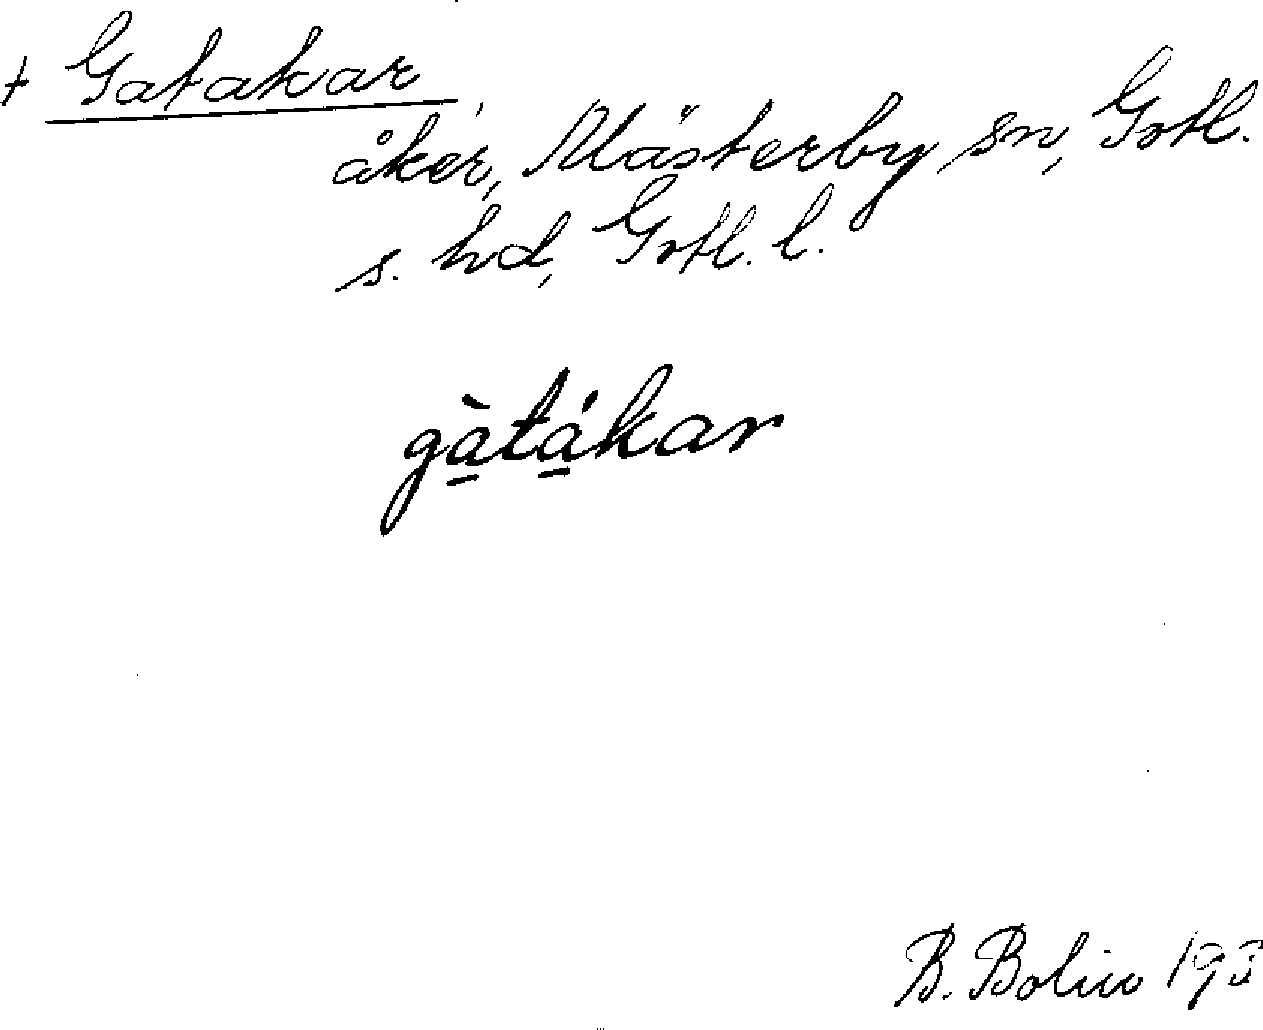 + Gatakar
åker, Mästerby sn, Gotl.
s. hd, Gotl. l.
gà̱tá̱kar
B. Bolin 193